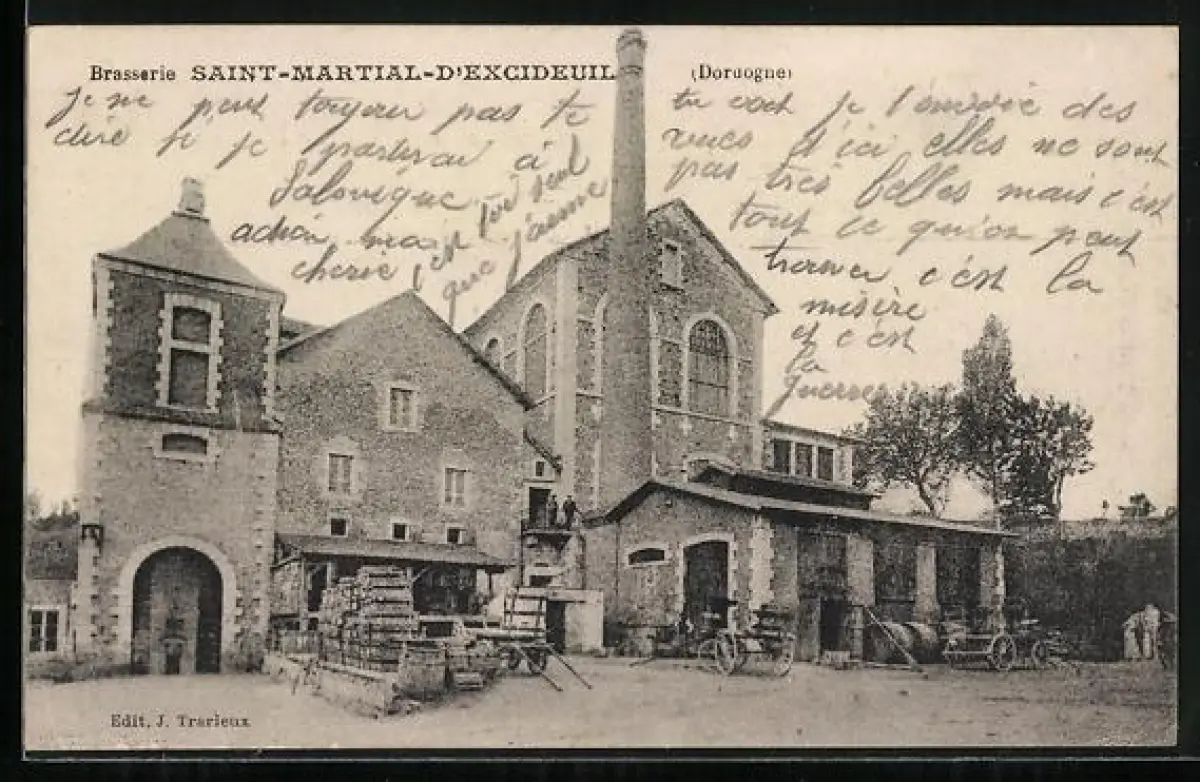 Brasserie SAINT-MARTIAL-D'EXCIDEUIL (Dordogne)
Je ne peut pas te
dire si je partirai à
Salonique
adcha
cherie c'est toi seul
que j'aime
tu voet Je t'envoie des
vues d'ici elles ne sont
pas très belles mais c'est
tout ce qu'on peut
trouver c'est la
misère
et c'est
la
guerre
Edit. J. Trarieux